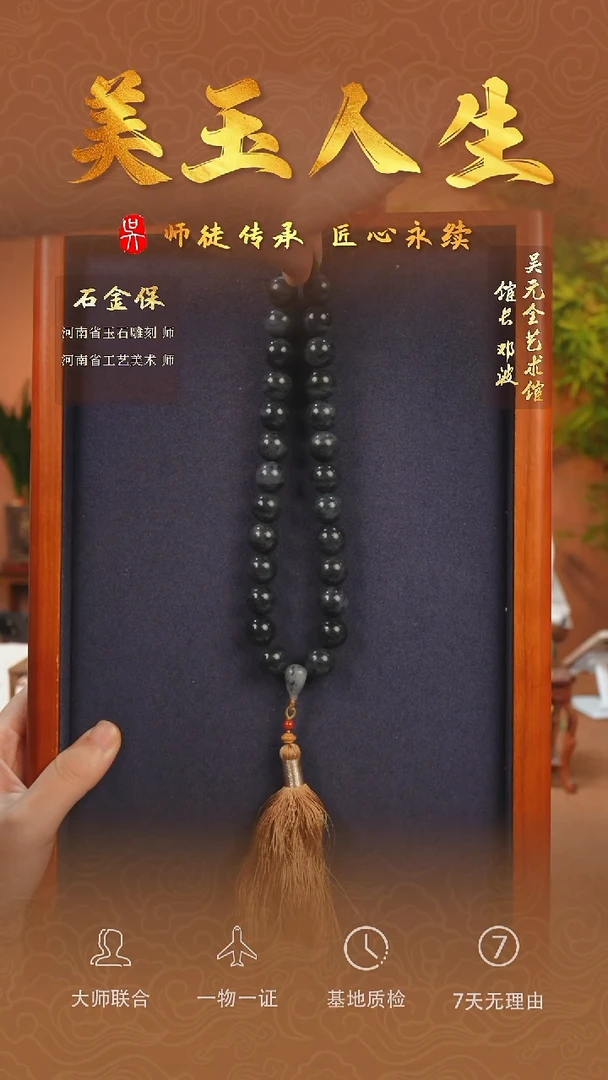 美玉人生
吴
师徒传承 匠心永续
石金保
河南省玉石雕刻 师
河南省工艺美术 师
吴元全艺术馆
馆长 邓波
7
大师联合
一物一证
基地质检
7天无理由